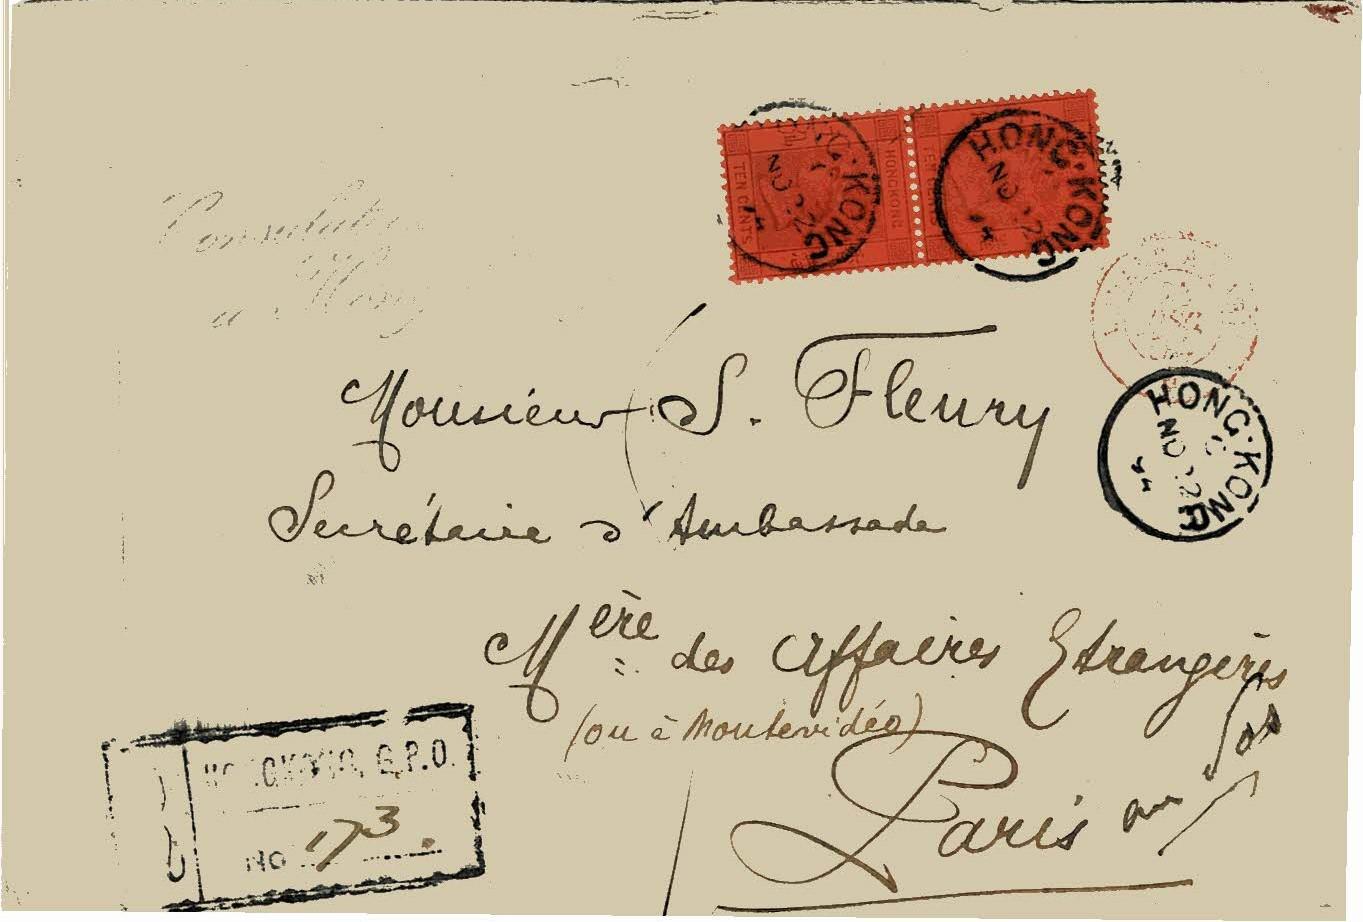 TEN CENTS
HONGKONG
TEN CENTS
HONG·KONG
NO 22
HONG·KONG
NO 22
Consulat
à
Monsieur S. Fleury
HONG·KONG
C
NO 22
94
Secrétaire d'Ambassade
Mère des Affaires Etrangères
(ou à Montevidéo)
Paris
HONGKONG, G.P.O.
R
No 173.